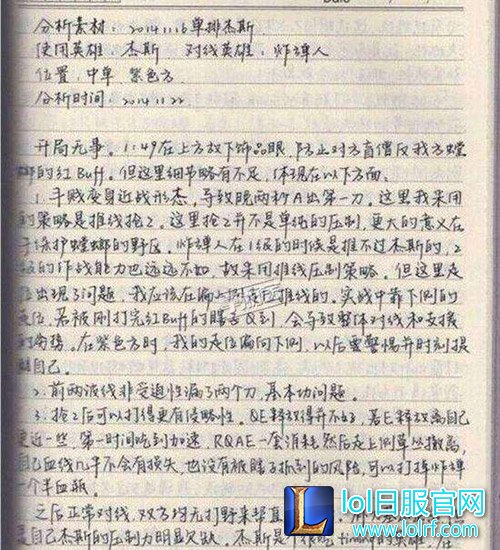 分析素材：2014.11.16单排杰斯
使用英雄：杰斯 对线英雄：炸弹人
位置：中单 紫色方
分析时间：2014.11.22
开局无事。1:49在上方放下饰品眼，防止对方盲僧反我方螳
螂的红Buff。但这里细节略有不足，体现在以下方面。
1.手贱变身近战形态，导致晚两秒A出第一刀。这里我采用
的策略是推线抢2。这里抢2并不是单纯的压制，更大的意义在
于保护螳螂的野区。炸弹人在1级的时候是推不过杰斯的，2
级的作战能力也远远不如，故采用推线压制策略。但这里走
位出现了问题，我应该在偏上侧走位推线的。实战中靠下侧的
走位，若被刚打完红Buff的瞎子Q到，会导致整体对线和支援
的崩。在紫色方时，我的走位偏向下侧，以后需警惕并时刻提
醒自己。
2.前两波线非受迫性漏了两个刀，基本功问题。
3.抢2后可以打得更有侵略性。QE释放得并不好，若E释放离自己
更近一些，第一时间吃到加速，RQAE一套消耗然后走上侧草丛撤离，
自己血线几乎不会有损失，也没有被瞎子抓到的风险，可以打掉炸弹
人半血瓶。
之后正常对线，双方均无打野来帮
自己杰斯的压制力明显欠缺。杰斯是
lol日服官网
www.lolrf.com